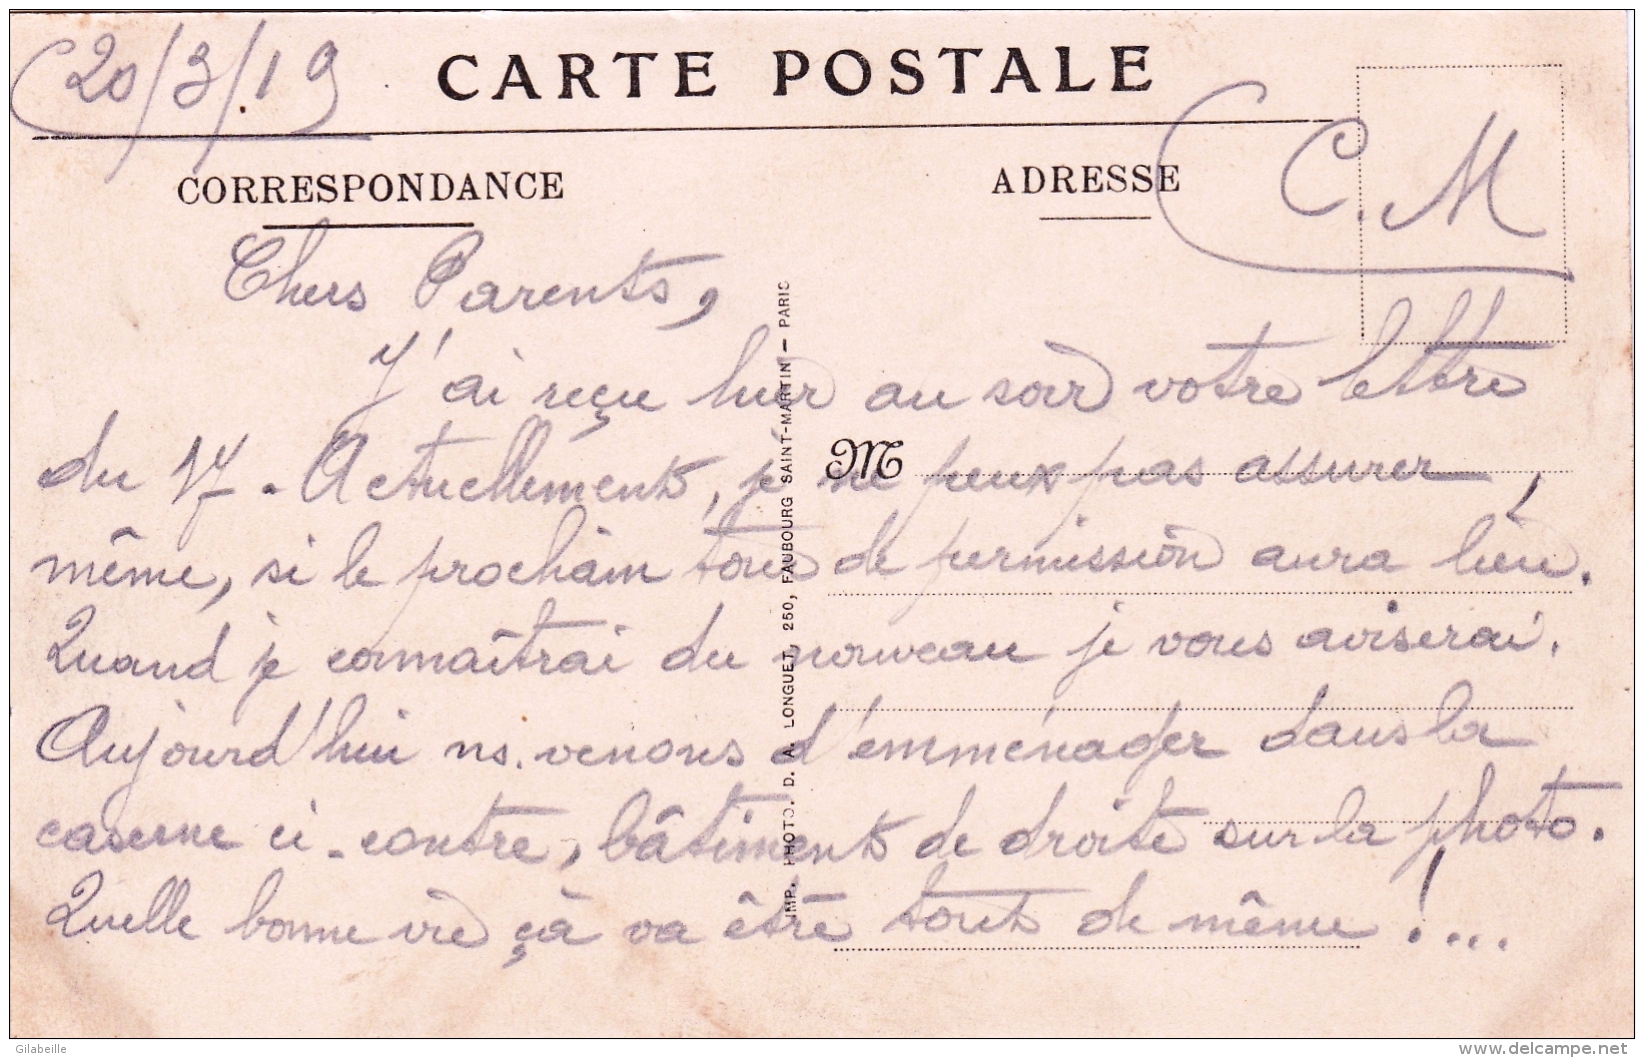 20/3/19
CARTE POSTALE
CORRESPONDANCE
ADRESSE
C.M
Chers Parents,
J'ai reçu hier au soir votre lettre
du 17. Actuellement, je ne peux pas assurer,
même, si le prochain tour de permission aura lieu.
Quand je connaîtrai du nouveau je vous aviserai.
Aujourd'hui ns. venons d'emménager dans la
caserne ci-contre, bâtiments de droite sur la photo.
Quelle bonne vie çà va être tout de même !...
M
IMP. PHOTO. D. A. LONGUET, 250, FAUBOURG SAINT-MARTIN — PARIS
Gilabeille
delcampe.net